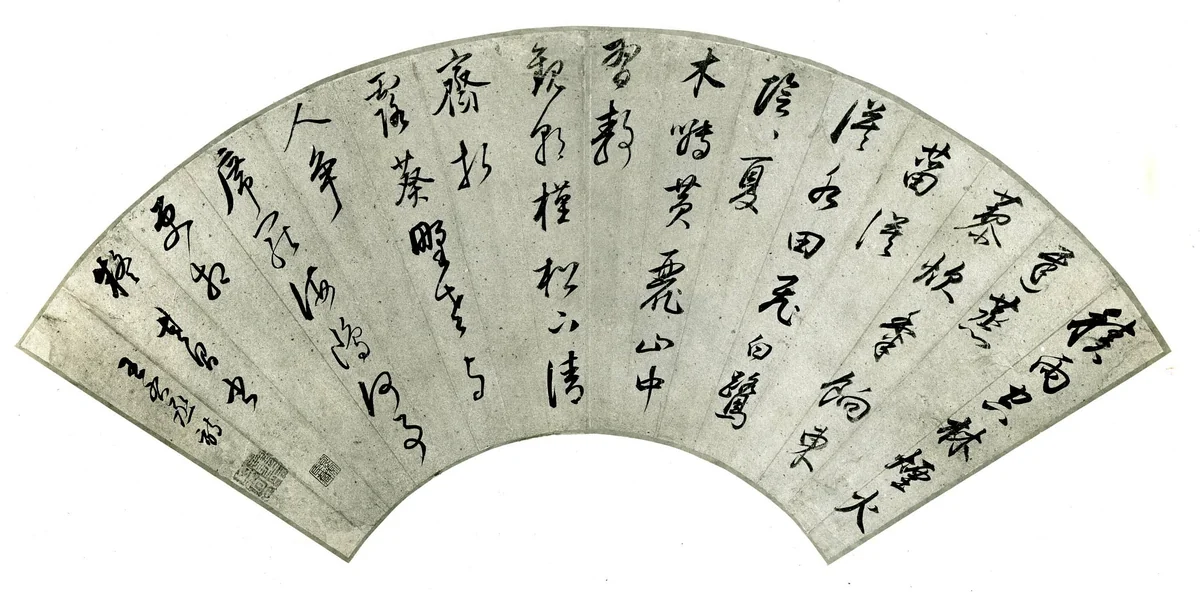 積雨空林煙火
遲蒸
藜炊黍餉東
菑漠
漠水田飛白鷺
陰、夏
木囀黃麗山中
習靜
觀朝槿松下清
齋折
露葵野老與
人爭
席罷海鷗何事
更相
疑 其昌書
王右丞詩